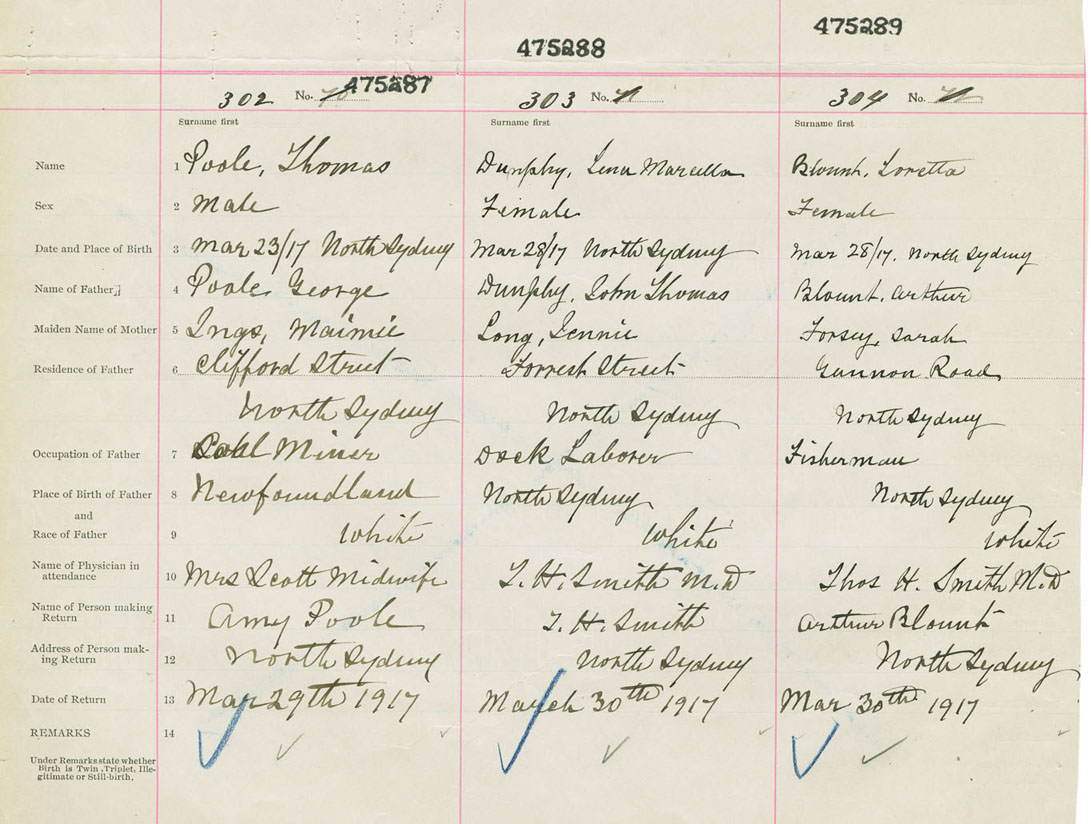 475289
475288
475287
302 No. 303 No. 304 No.
Surname first Surname first Surname first
Name 1 Poole, Thomas Dunphy, Lena Marcella Blount, Loretta
Sex 2 Male Female Female
Date and Place of Birth 3 Mar 23/17 North Sydney Mar 28/17 North Sydney Mar 28/17, North Sydney
Name of Father 4 Poole, George Dunphy, John Thomas Blount, Arthur
Maiden Name of Mother 5 Ings, Maimie Long, Jennie Forsey, Sarah
Residence of Father 6 Clifford Street Forrest Street Gannon Road
North Sydney North Sydney North Sydney
Occupation of Father 7 Coal Miner Dock Laborer Fisherman
Place of Birth of Father 8 Newfoundland North Sydney North Sydney
and
Race of Father 9 White White White
Name of Physician in
attendance 10 Mrs Scott Midwife T. H. Smith M.D Thos H. Smith M.D
Name of Person making
Return 11 Amy Poole T. H. Smith Arthur Blount
Address of Person mak-
ing Return 12 North Sydney North Sydney North Sydney
Date of Return 13 Mar 29th 1917 March 30th 1917 Mar 30th 1917
REMARKS 14
Under Remarks state whether
Birth is Twin, Triplet, Ille-
gitimate or Still-birth.